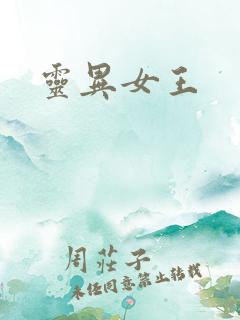 靈異女王
周莊子
未經同意禁止轉載